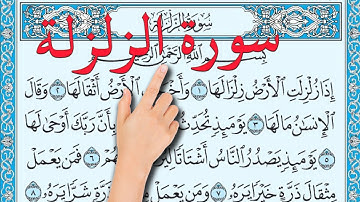 سُورَةُ الزَّلْزَلَةِ
سورة الزلزلة
بِسْمِ اللَّهِ الرَّحْمَٰنِ الرَّحِيمِ
إِذَا زُلْزِلَتِ الْأَرْضُ زِلْزَالَهَا ١ وَأَخْرَجَتِ الْأَرْضُ أَثْقَالَهَا ٢ وَقَالَ
الْإِنسَٰنُ مَا لَهَا ٣ يَوْمَئِذٍ تُحَدِّثُ بِأَنَّ رَبَّكَ أَوْحَىٰ لَهَا
٥ يَوْمَئِذٍ يَصْدُرُ النَّاسُ أَشْتَاتًا ٦ فَمَن يَعْمَلْ
مِثْقَالَ ذَرَّةٍ خَيْرًا يَرَهُ ٧ وَمَن يَعْمَلْ ذَرَّةٍ شَرًّا يَرَهُ ٨